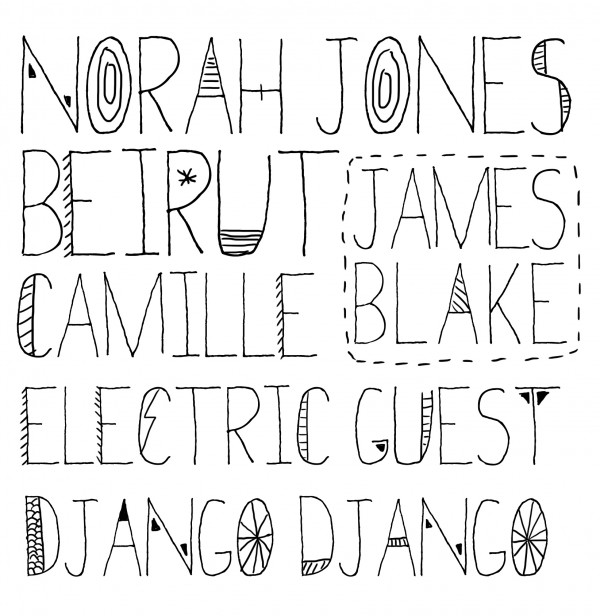 NORAH JONES
BEIRUT
JAMES
BLAKE
CAMILLE
ELECTRIC GUEST
DJANGO DJANGO